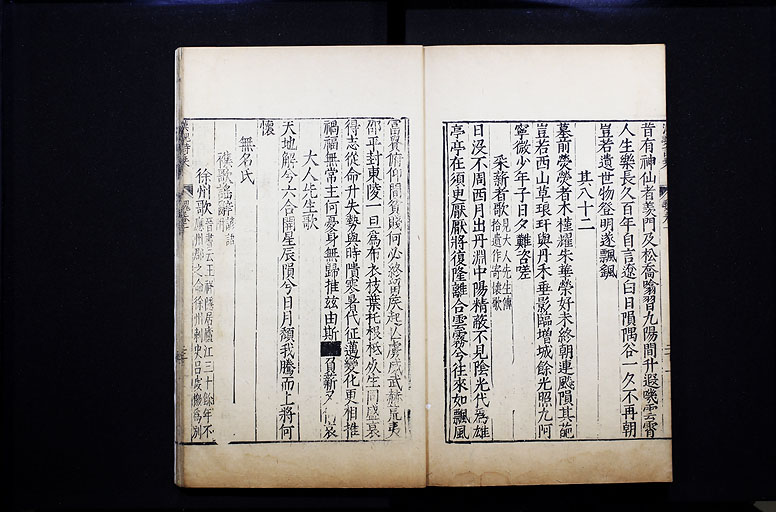 昔有神仙者羨門及松喬噏習九陽間升遐嘰雲霄
人生樂長久百年自言遼白日隕隅谷一夕不再朝
豈若遺世物登明遂飄颻
其八十二
墓前熒熒者木槿耀朱華榮好未終朝連飈隕其葩
豈若西山草琅玕與丹禾垂影臨增城餘光照九阿
寧微少年子日夕難咨嗟
采薪者歌
見大人先生傳
拾遺作寄懷歌
日没不周西月出丹淵中陽精蔽不見陰光代為雄
亭亭在須臾厭厭將復隆離合雲霧兮往來如飄風
富貴俯仰間貧賤何必終留侯起亡虜威武赫荒夷
邵平封東陵一旦為布衣枝葉托根柢死生同盛衰
得志從命升失勢與時隤寒暑代征邁變化更相推
禍福無常主何憂身無歸推兹由斯負薪又何哀
大人先生歌
天地解兮六合開星辰隕兮日月頹我騰而上將何
懷
無名氏
襍歌謠辭
徐州歌
晉書云王祥隱居廬江三十餘年不
應州郡之命徐州刺史呂虔檄為别